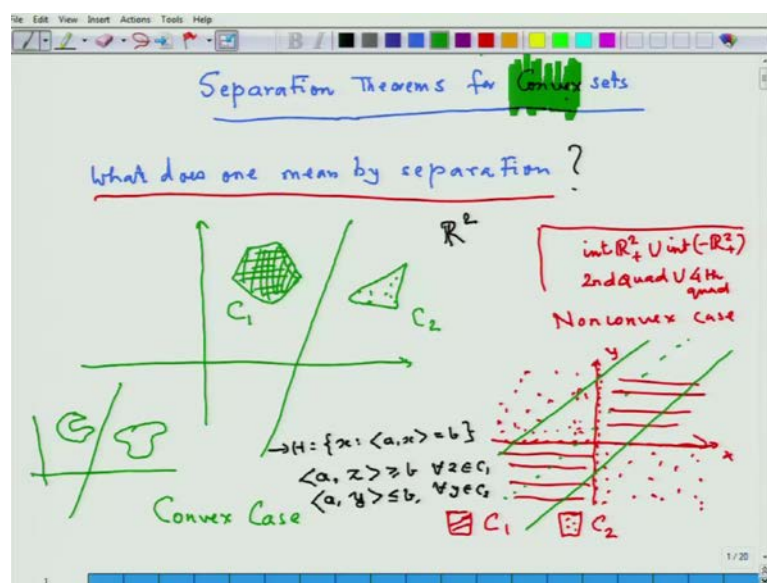 File Edit View Insert Actions Tools Help
B I
Separation Theorems for Convex sets
What does one mean by separation?
ℝ²
int ℝ²₊ ∪ int(-ℝ²₊)
2nd Quad ∪ 4th quad
Nonconvex Case
C₁
C₂
y
x
→ H = {x : <a,x> = b}
<a, z> ≥ b ∀ z ∈ C₁
<a, y> ≤ b, ∀ y ∈ C₂
Convex Case
C₁ C₂
1 / 20